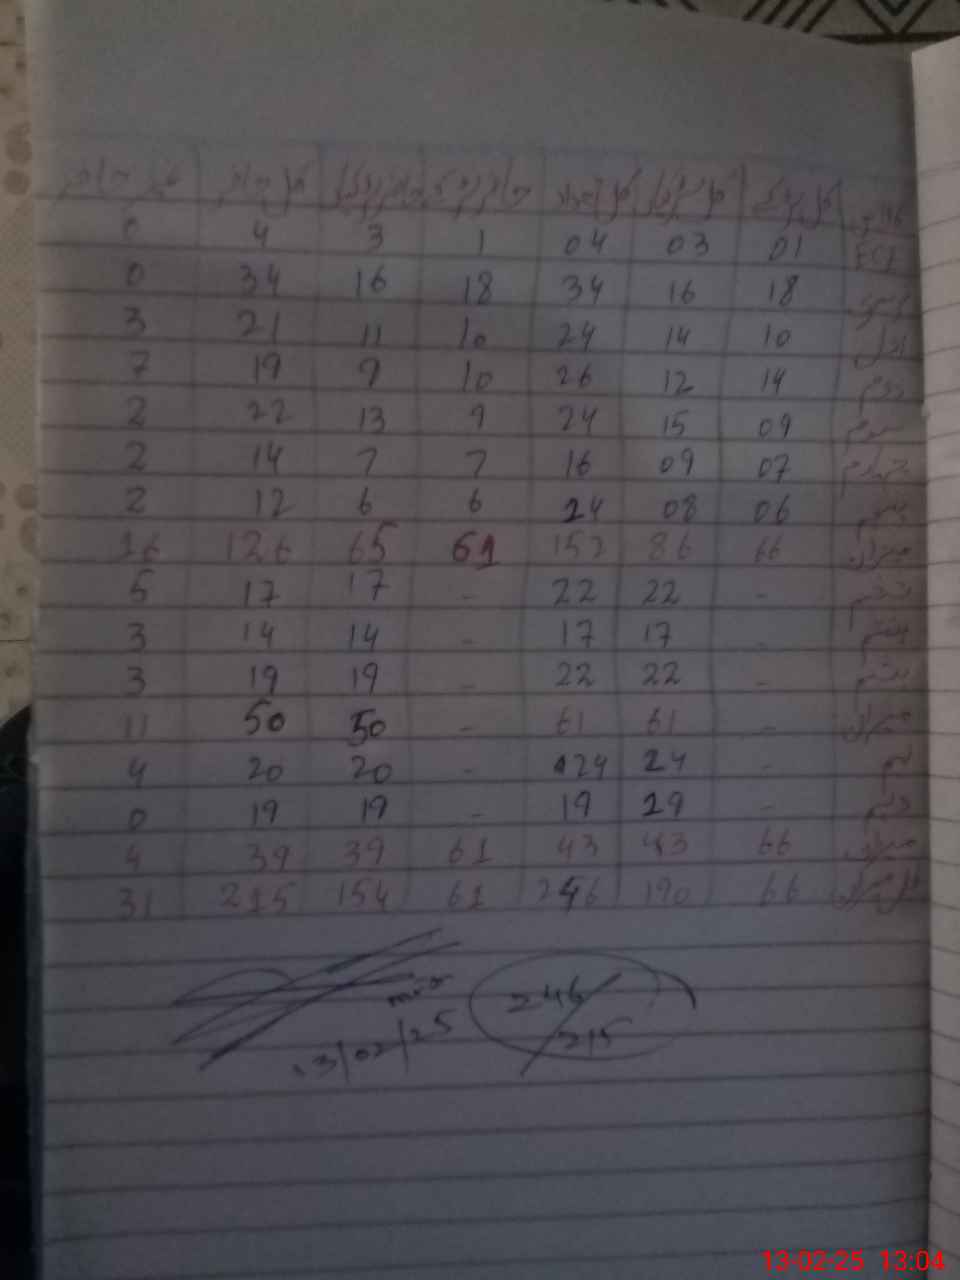 کل تعداد کل حاضر غیر حاضر
ECE 01 03 04 1 3 4 0
18 16 34 18 16 34 0
اول 10 14 24 10 11 21 3
دوم 14 12 26 10 9 19 7
سوم 09 15 24 9 13 22 2
چہارم 07 09 16 7 7 14 2
پنجم 06 08 24 6 6 12 2
میزان 66 86 152 61 65 126 16
ششم - 22 22 - 17 17 5
ہفتم - 17 17 - 14 14 3
ہشتم - 22 22 - 19 19 3
میزان - 61 61 - 50 50 11
نہم - 24 24 - 20 20 4
دہم - 19 19 - 19 19 0
میزان 66 43 43 61 39 39 4
کل میزان 66 190 246 61 154 215 31
246/215
13/02/25
13-02-25 13:04